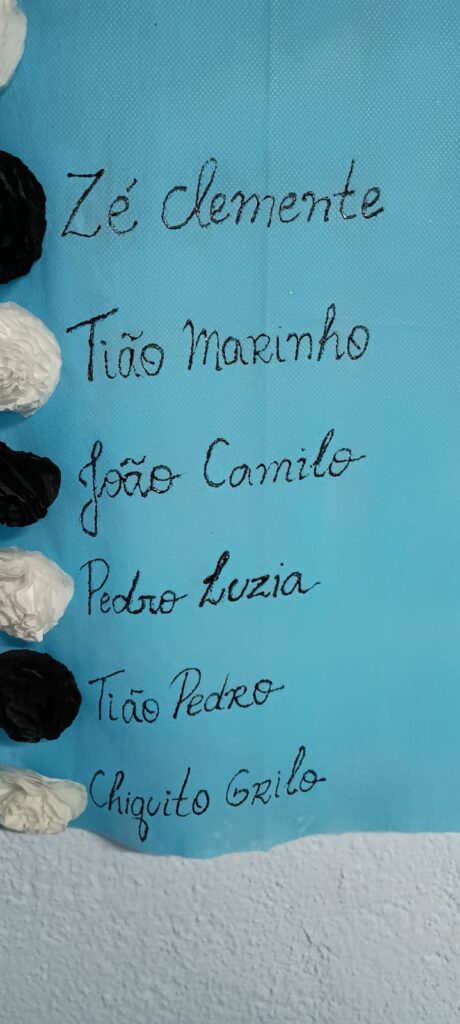 Zé Clemente
Tião Marinho
João Camilo
Pedro Luzia
Tião Pedro
Chiquito Grilo